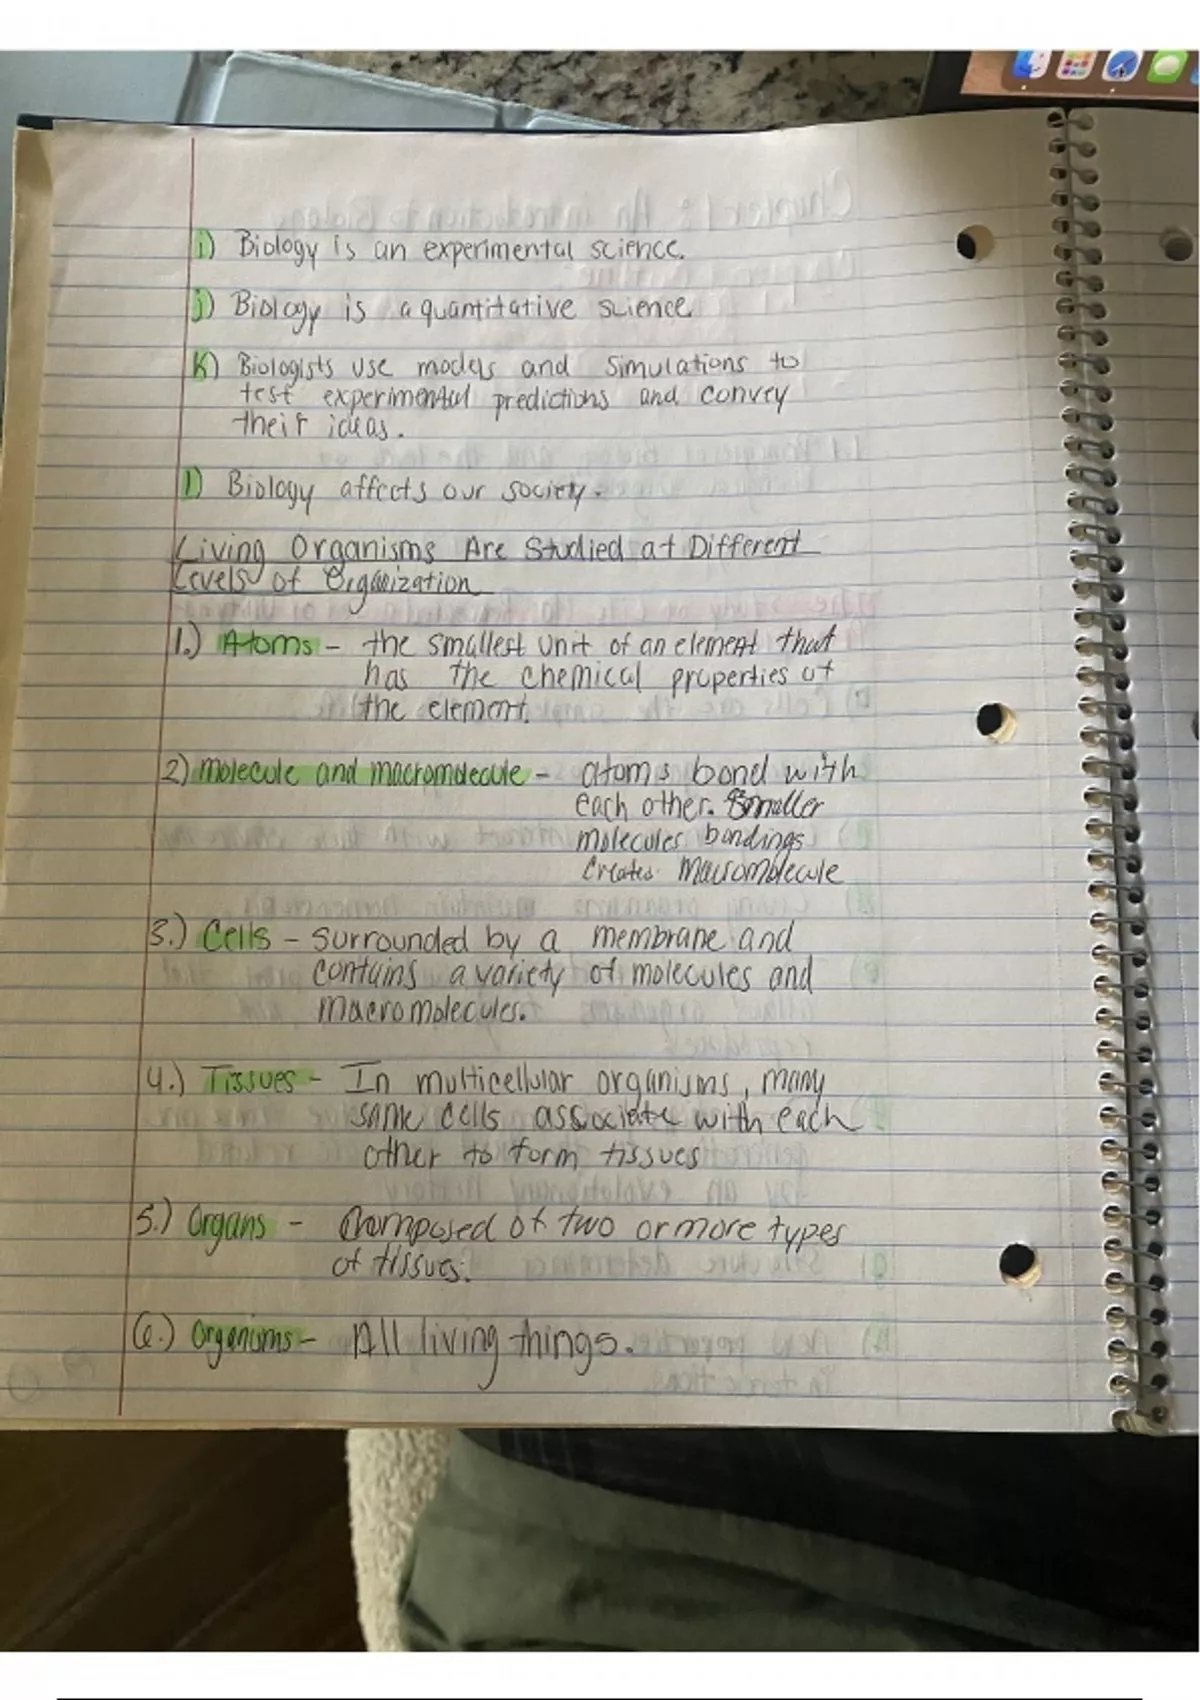 i) Biology is an experimental science.
j) Biology is a quantitative science
K) Biologists use models and simulations to
test experimental predictions and convey
their ideas.
l) Biology affects our society.
Living Organisms Are Studied at Different
Levels of Organization
1.) Atoms - the smallest unit of an element that
has the chemical properties of
the element.
2) Molecule and macromolecule - atoms bond with
each other. Smaller
molecules bondings
creates macromolecule
3.) Cells - surrounded by a membrane and
contains a variety of molecules and
macromolecules.
4.) Tissues - In multicellular organisms, many
same cells associate with each
other to form tissues
5.) Organs - Composed of two or more types
of tissues.
6.) Organisms - All living things.